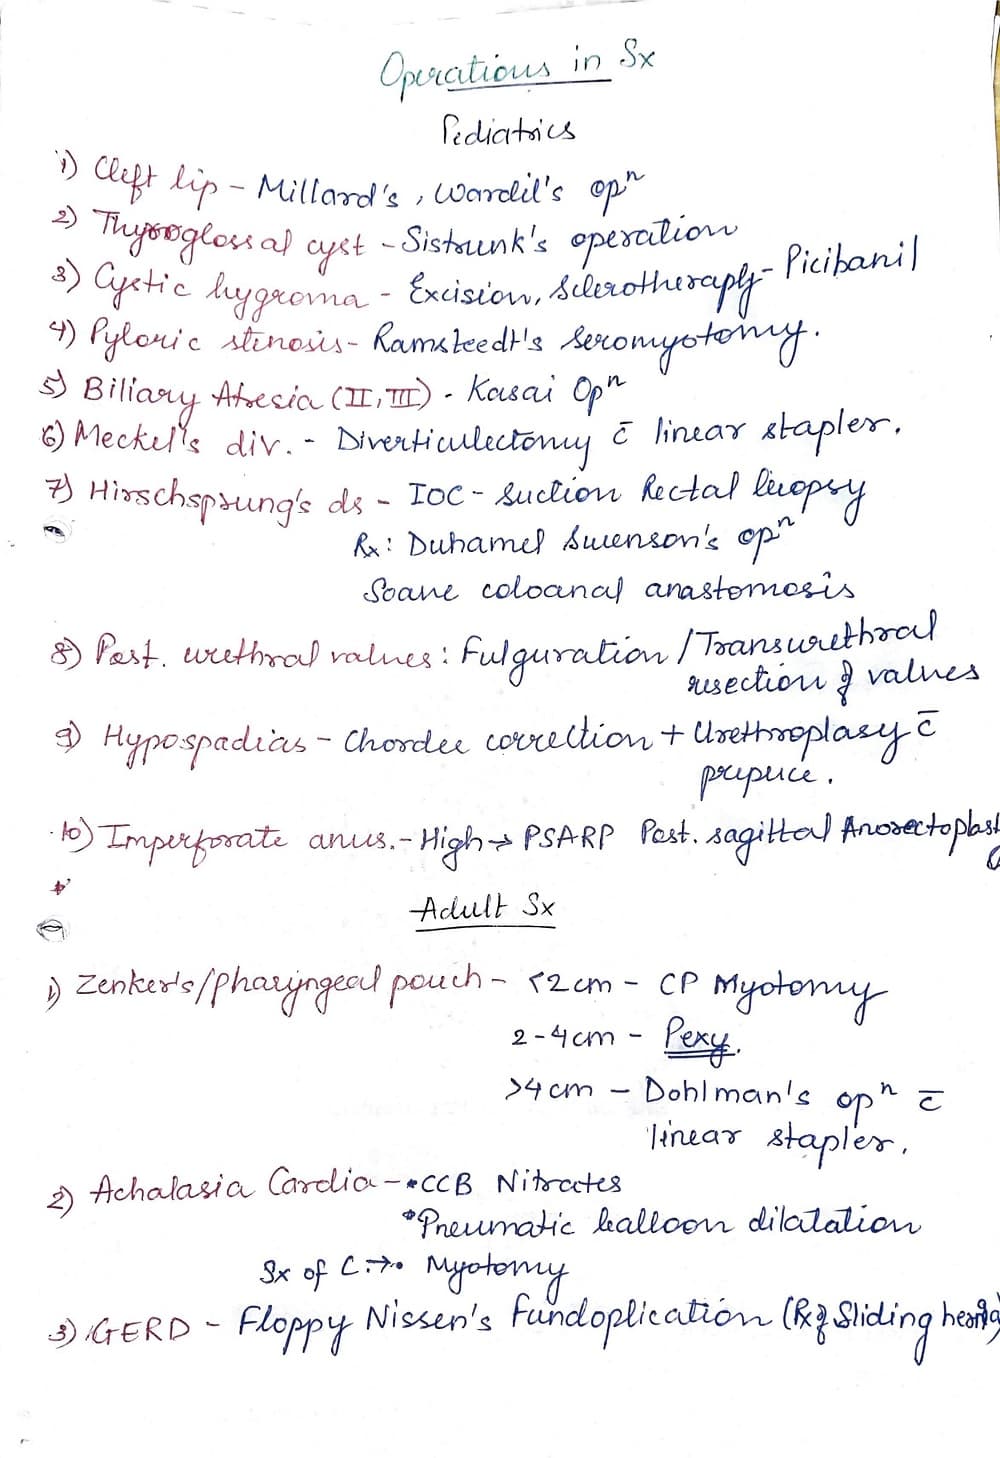 Operations in Sx
Pediatrics
1) Cleft lip - Millard's, Wardil's opⁿ
2) Thyroglossal cyst - Sistrunk's operation
3) Cystic hygroma - Excision, Sclerotheraply - Picibanil
4) Pyloric stenosis - Ramsteedt's Seromyotomy.
5) Biliary Atresia (II, III) - Kasai Opⁿ
6) Meckel's div. - Diverticulectomy c̄ linear stapler.
7) Hirschsprung's ds - IOC - Suction Rectal biopsy
Rx: Duhamel Swenson's opⁿ
Soave coloanal anastomosis
8) Post. urethral valves: Fulguration / Transurethral
resection of valves
9) Hypospadias - Chordee correction + Urethroplasy c̄
prepuce.
10) Imperforate anus. - High → PSARP Post. sagittal Anorectoplasty
Adult Sx
1) Zenker's/Pharyngeal pouch - <2cm - CP Myotomy
2-4cm - Pexy.
>4cm - Dohlman's opⁿ c̄
linear stapler.
2) Achalasia Cardia - • CCB Nitrates
• Pneumatic balloon dilatation
Sx of C: → • Myotomy
3) GERD - Floppy Nissen's Fundoplication (Rx of Sliding